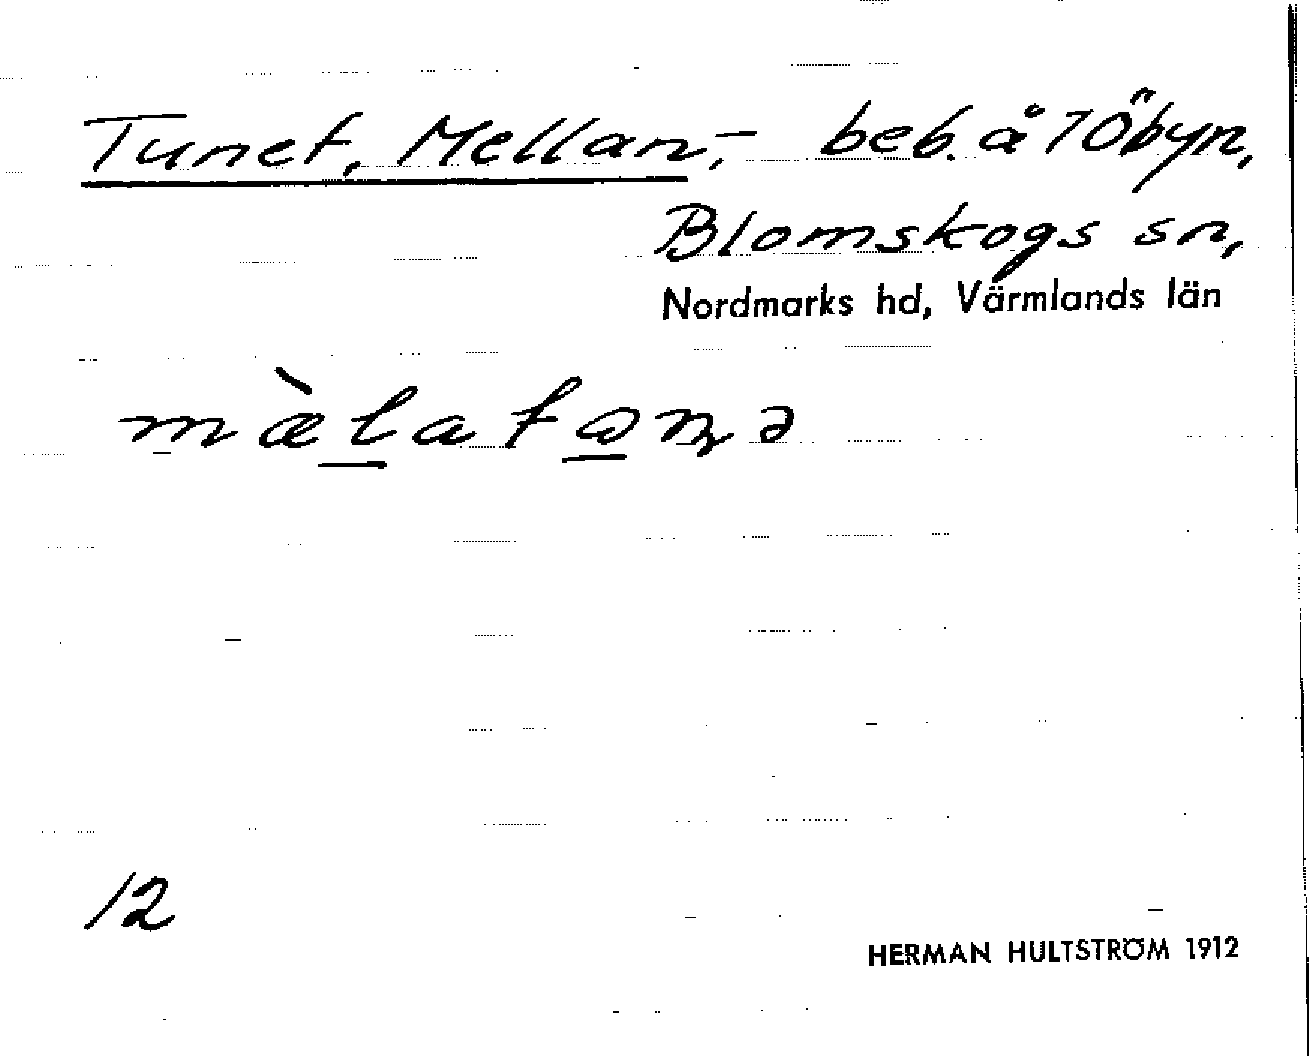 Tunet, Mellan,- beb. å 7 Öbyn,
Blomskogs sn,
Nordmarks hd, Värmlands län
mæ̀latan̥ə
12
HERMAN HULTSTRÖM 1912